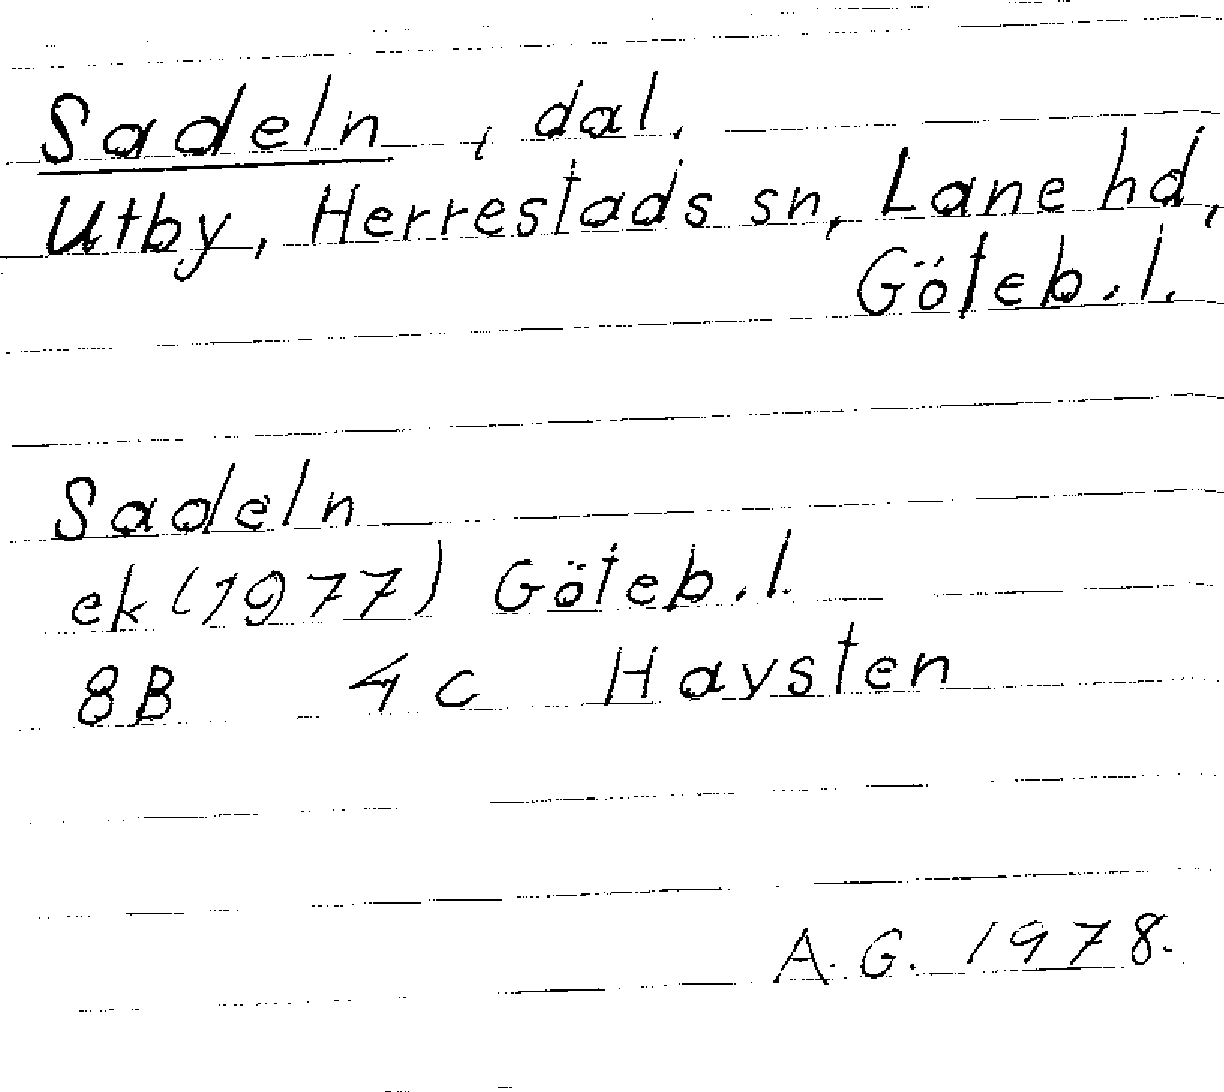 Sadeln, dal.
Utby, Herrestads sn, Lane hd,
Göteb. l.
Sadeln
ek (1977) Göteb. l.
8B 4c Havsten
A. G. 1978.